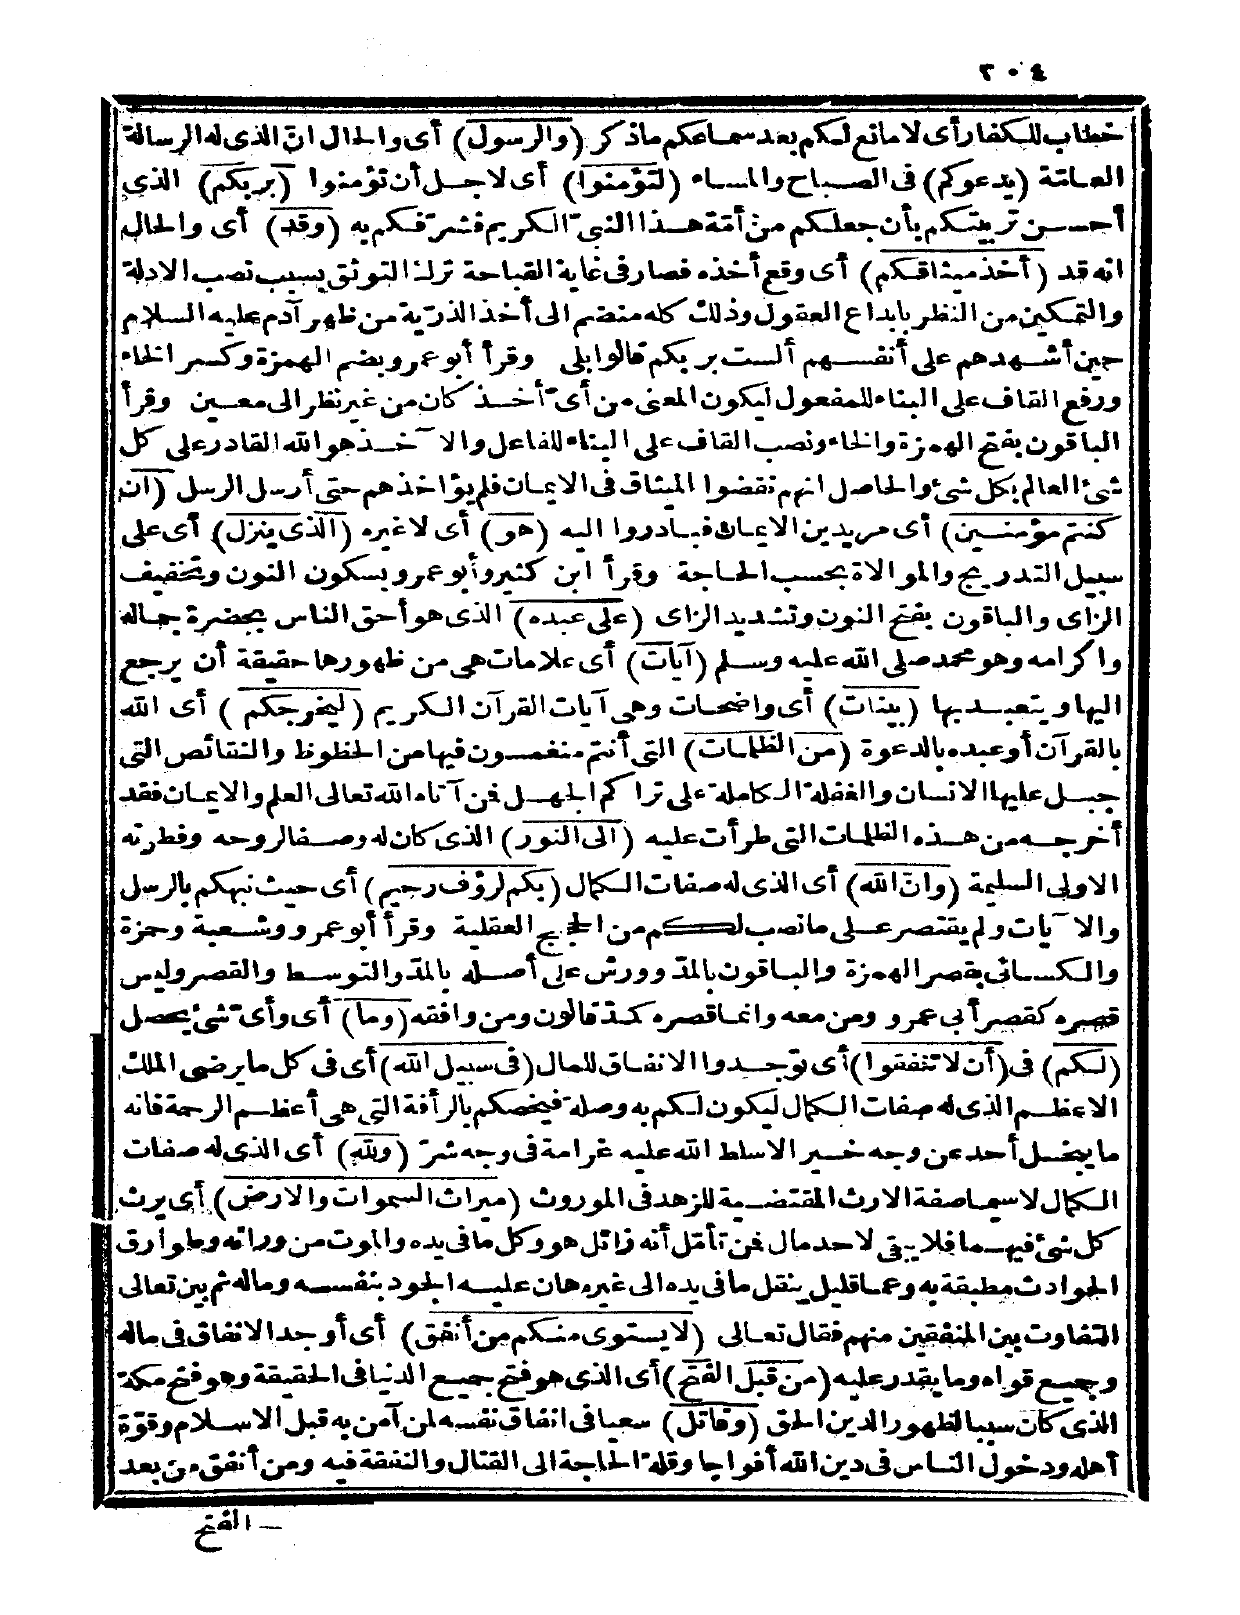 ٢٠٤
خطاب للكفار أى لا مانع لكم بعد سماعكم ماذكر (والرسول) أى والحال انّ الذى له الرسالة
العامّة (يدعوكم) فى الصباح والمساء (لتؤمنوا) أى لاجل أن تؤمنوا (بربكم) الذي
أحسن تربيتكم بأن جعلكم من أمّة هذا النبىّ الكريم فشرّفكم به (وقد) أى والحال
انه قد (أخذ ميثاقكم) أى وقع أخذه فصار فى غاية القباحة ترك التوثق بسبب نصب الادلة
والتمكين من النظر بابداع العقول وذلك كله منضم الى أخذ الذرّية من ظهر آدم عليه السلام
حين أشهدهم على أنفسهم ألست بربكم قالوا بلى وقرأ أبو عمرو بضم الهمزة وكسر الخاء
ورفع القاف على البناء للمفعول ليكون المعنى من أىّ أخذ كان من غير نظر الى معين وقرأ
الباقون بفتح الهمزة والخاء ونصب القاف على البناء للفاعل والآخذ هو الله القادر على كل
شئ العالم بكل شئ والحاصل انهم نقضوا الميثاق فى الايمان فلم يؤاخذهم حتى أرسل الرسل (ان
كنتم مؤمنين) أى مريدين الايمان فبادروا اليه (هو) أى لا غيره (الذى ينزل) أى على
سبيل التدريج والموالاة بحسب الحاجة وقرأ ابن كثير وأبو عمرو بسكون النون وتخفيف
الزاى والباقون بفتح النون وتشديد الزاى (على عبده) الذى هو أحق الناس بحضرة جماله
واكرامه وهو محمد صلى الله عليه وسلم (آيات) أى علامات هى من ظهورها حقيقة أن يرجع
اليها ويتعبد بها (بينات) أى واضحات وهى آيات القرآن الكريم (ليخرجكم) أى الله
بالقرآن أو عبده بالدعوة (من الظلمات) التى أنتم منغمسون فيها من الحظوظ والنقائص التى
جبل عليها الانسان والغفلة الكاملة على تراكم الجهل فمن آتاه الله تعالى العلم والايمان فقد
أخرجه من هذه الظلمات التى طرأت عليه (الى النور) الذى كان له وصفا لروحه وفطرته
الاولى السليمة (وانّ الله) أى الذى له صفات الكمال (بكم لرؤف رحيم) أى حيث نبهكم بالرسل
والآيات ولم يقتصر على ما نصب لكم من الحجج العقلية وقرأ أبو عمرو وشعبة وحمزة
والكسائى بقصر الهمزة والباقون بالمدّ وورش على أصله بالمدّ والتوسط والقصر وليس
قصره كقصر أبى عمرو ومن معه وانما قصره كمدّ قالون ومن وافقه (وما) أى وأىّ شئ يحصل
(لكم) فى (أن لا تنفقوا) أى توجدوا الانفاق للمال (فى سبيل الله) أى فى كل ما يرضى الملك
الاعظم الذى له صفات الكمال ليكون لكم به وصلة فيخصكم بالرأفة التى هى أعظم الرحمة فانه
ما يبخل أحد عن وجه خير الا سلط الله عليه غرامة فى وجه شرّ (ولله) أى الذى له صفات
الكمال لا سيما صفة الارث المقتضية للزهد فى الموروث (ميراث السموات والارض) أى يرث
كل شئ فيهما فلا يبقى لاحد مال فمن تأمّل أنه زائل هو وكل ما فى يده والموت من ورائه وطوارق
الحوادث مطبقة به وعما قليل ينقل ما فى يده الى غيره هان عليه الجود بنفسه وماله ثم بين تعالى
التفاوت بين المنفقين منهم فقال تعالى (لا يستوى منكم من أنفق) أى أوجد الانفاق فى ماله
وجميع قواه وما يقدر عليه (من قبل الفتح) أى الذى هو فتح جميع الدنيا فى الحقيقة وهو فتح مكة
الذى كان سببا لظهور الدين الحق (وقاتل) سعيا فى انفاق نفسه لمن آمن به قبل الاسلام وقوّة
أهله ودخول الناس فى دين الله أفواجا وقلة الحاجة الى القتال والنفقة فيه ومن أنفق من بعد
ـ الفتح